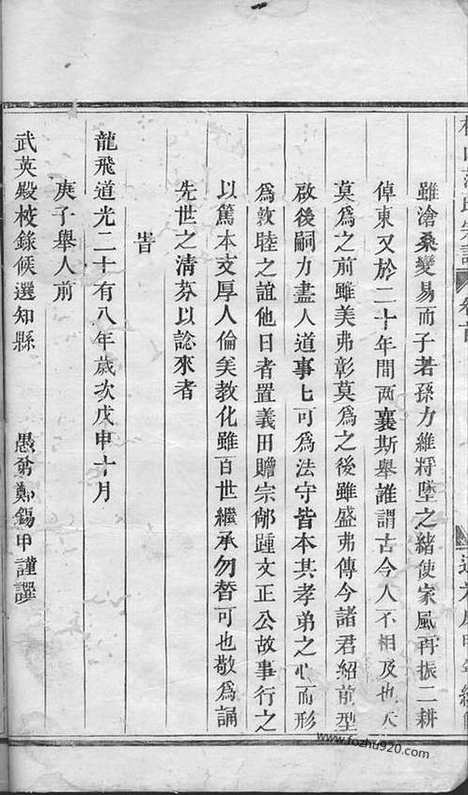 雖滄桑變易而子若孫力維將墜之緒使家風再振二耕
倬東又於二十年間兩襄斯舉誰謂古今人不相及也夫
莫爲之前雖美弗彰莫爲之後雖盛弗傳今諸君紹前型
啟後嗣力盡人道事七可爲法守皆本其孝弟之心而形
爲敦睦之誼他日者置義田贍宗鄉踵文正公故事行之
以篤本支厚人倫美教化雖百世繼承勿替可也敬爲誦
先世之清芬以諗來者
旹
龍飛道光二十有八年歲次戊申十月
庚子舉人前
武英殿校錄候選知縣 愚甥鄭錫甲謹譔
www.fozhu920.com